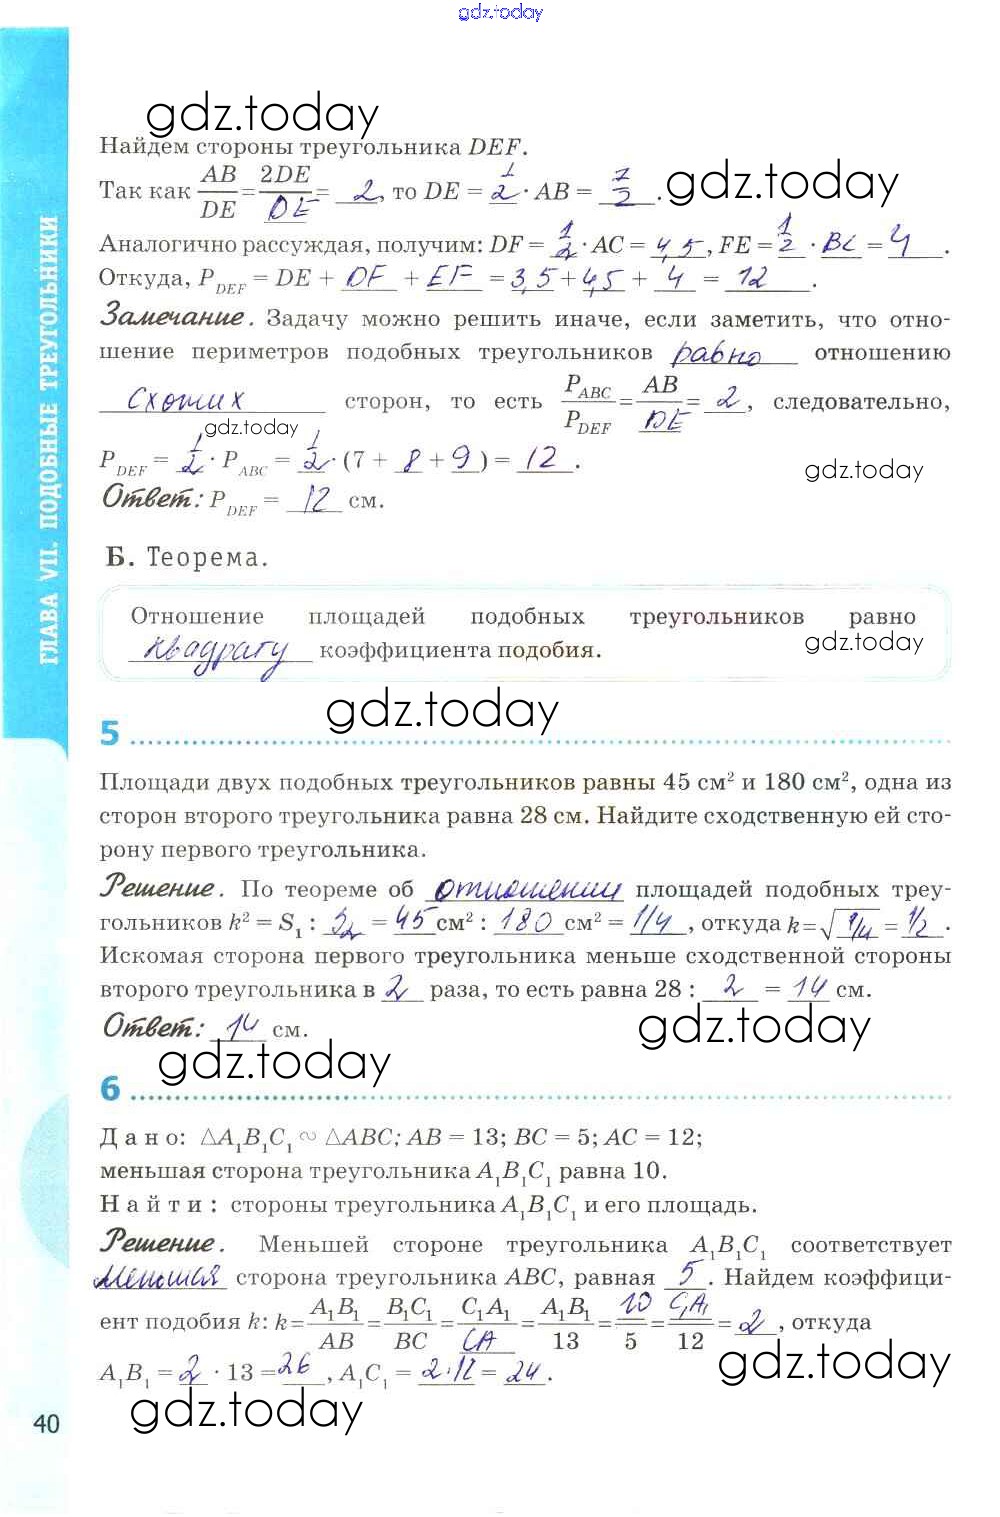 gdz.today
gdz.today
Найдем стороны треугольника DEF.
Так как AB/DE = 2DE/DE = 2, то DE = 1/2 · AB = 7/2. gdz.today
Аналогично рассуждая, получим: DF = 1/2 · AC = 4,5, FE = 1/2 · BC = 4.
Откуда, P_DEF = DE + DF + EF = 3,5 + 4,5 + 4 = 12.
Замечание. Задачу можно решить иначе, если заметить, что отно-
шение периметров подобных треугольников равно отношению
схожих сторон, то есть P_ABC/P_DEF = AB/DE = 2, следовательно,
gdz.today
P_DEF = 1/2 · P_ABC = 1/2 · (7 + 8 + 9) = 12.
gdz.today
Ответ: P_DEF = 12 см.
Б. Теорема.
Отношение площадей подобных треугольников равно
квадрату коэффициента подобия.
gdz.today
gdz.today
5
Площади двух подобных треугольников равны 45 см² и 180 см², одна из
сторон второго треугольника равна 28 см. Найдите сходственную ей сто-
рону первого треугольника.
Решение. По теореме об отношении площадей подобных треу-
гольников k² = S₁ : S₂ = 45 см² : 180 см² = 1/4, откуда k = √1/4 = 1/2.
Искомая сторона первого треугольника меньше сходственной стороны
второго треугольника в 2 раза, то есть равна 28 : 2 = 14 см.
Ответ: 14 см.
gdz.today
gdz.today
6
Дано: △A₁B₁C₁ ∾ △ABC; AB = 13; BC = 5; AC = 12;
меньшая сторона треугольника A₁B₁C₁ равна 10.
Найти: стороны треугольника A₁B₁C₁ и его площадь.
Решение. Меньшей стороне треугольника A₁B₁C₁ соответствует
меньшая сторона треугольника ABC, равная 5. Найдем коэффици-
ент подобия k: k = A₁B₁/AB = B₁C₁/BC = C₁A₁/CA = A₁B₁/13 = 10/5 = C₁A₁/12 = 2, откуда
A₁B₁ = 2 · 13 = 26, A₁C₁ = 2·12 = 24.
gdz.today
gdz.today
40
ГЛАВА VII. ПОДОБНЫЕ ТРЕУГОЛЬНИКИ